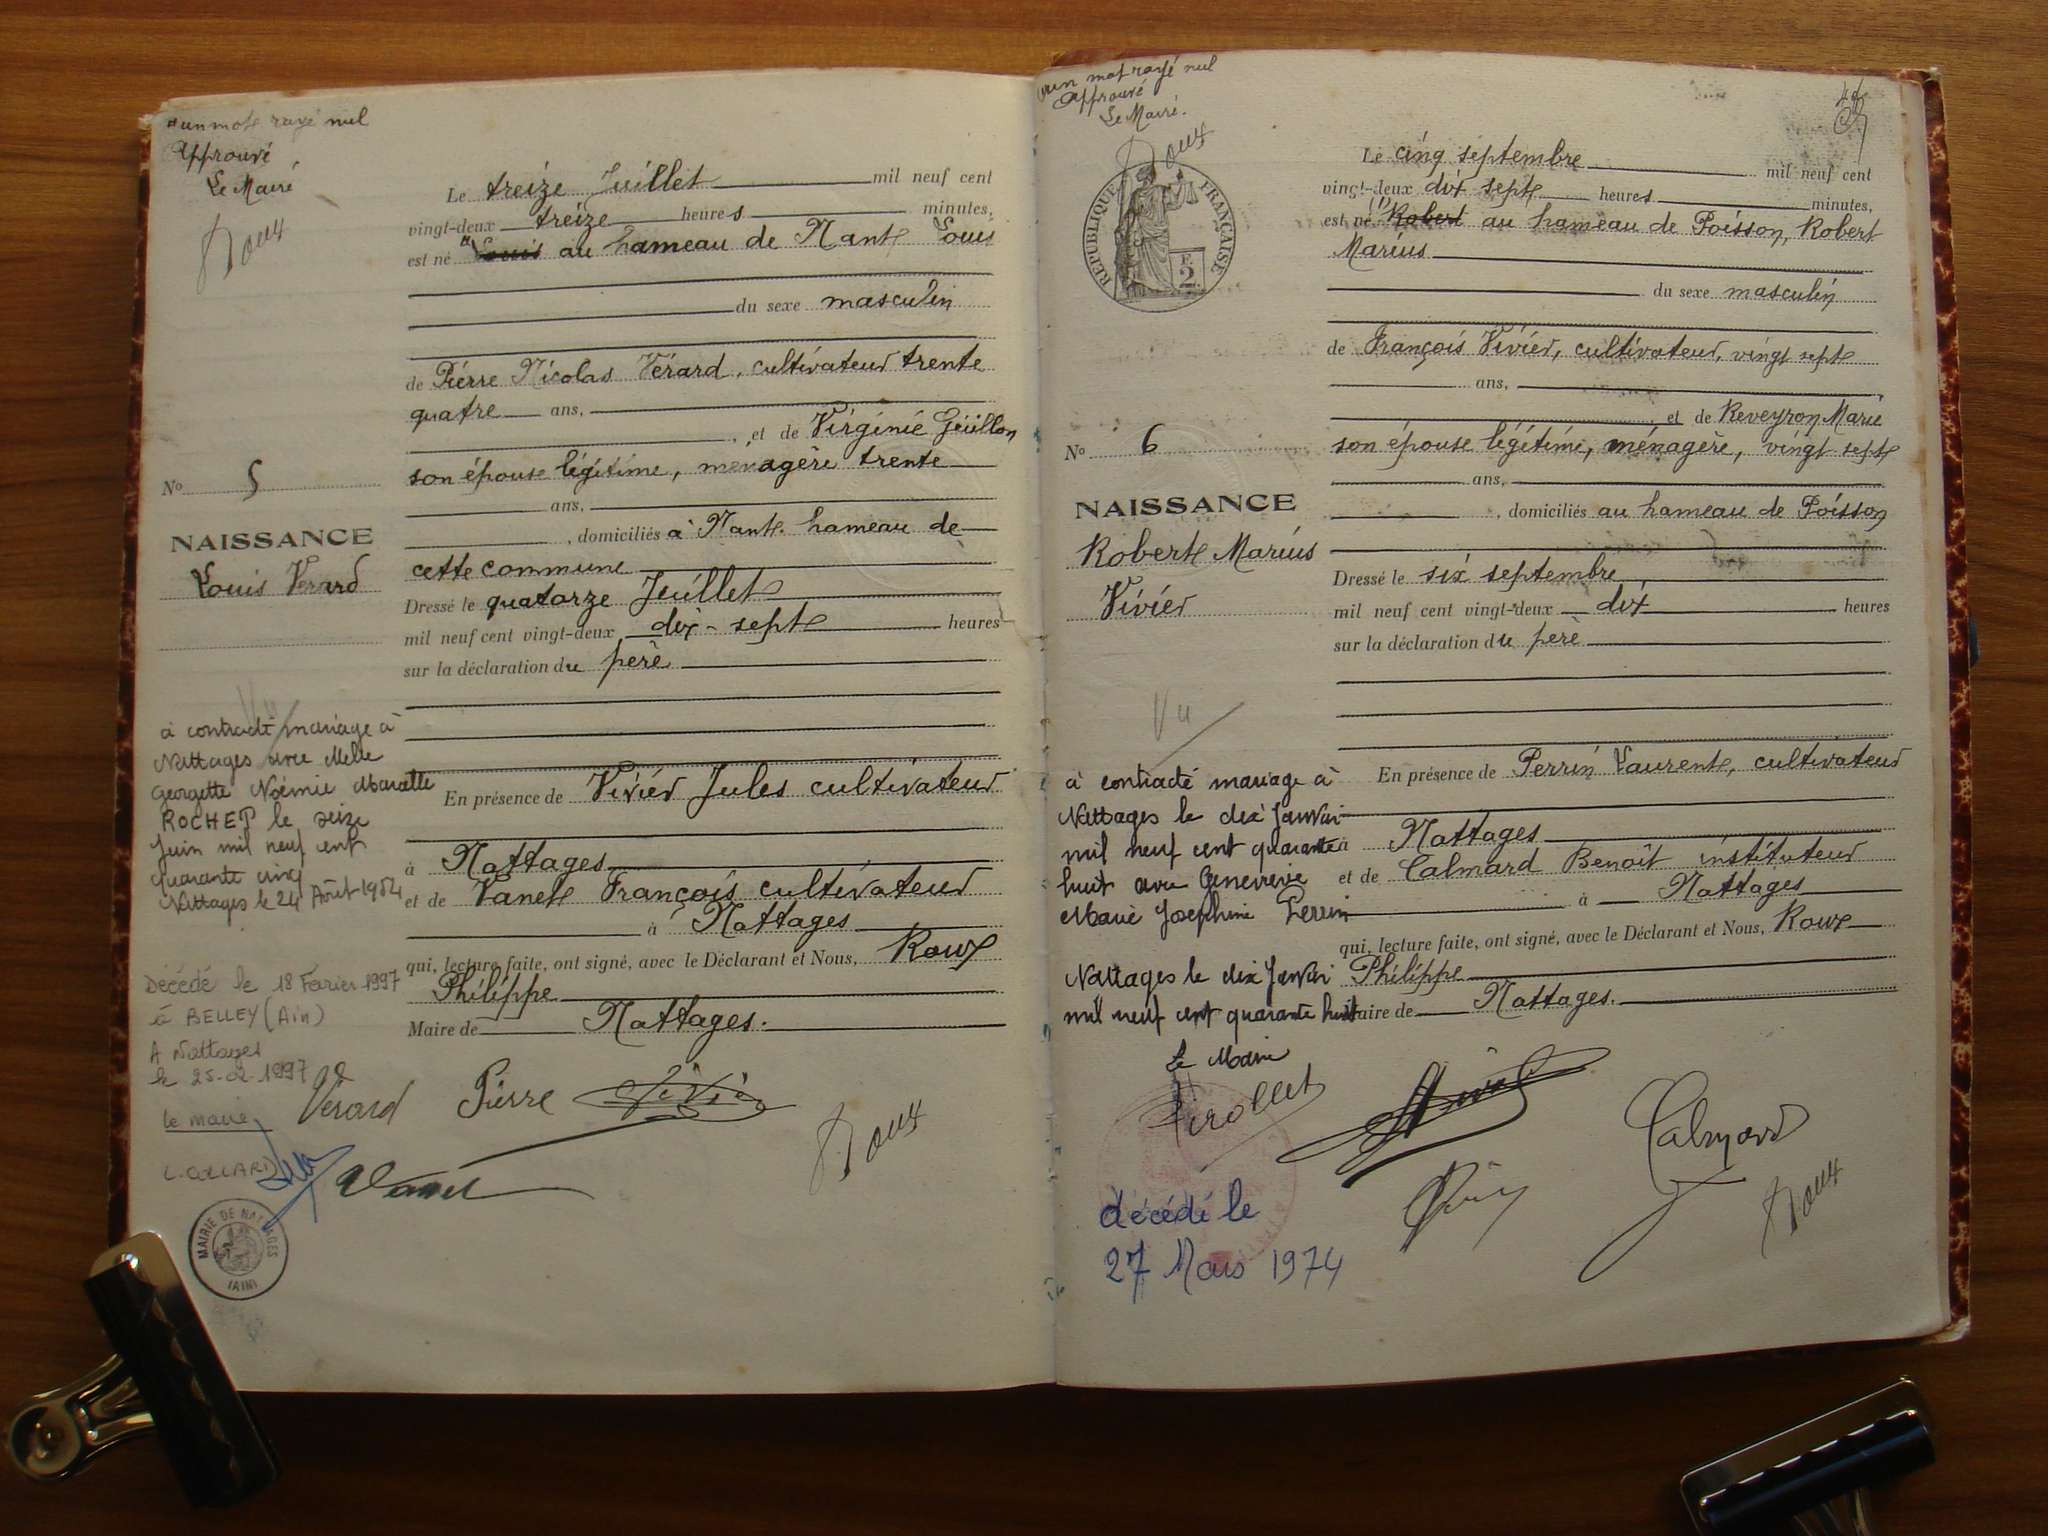 un mot rayé nul
Approuvé
Le Maire
Roux
Le treize Juillet mil neuf cent
vingt-deux treize heures minutes,
est né Louis au hameau de Nant Louis
du sexe masculin
de Pierre Nicolas Vérard, cultivateur trente
quatre ans,
, et de Virginie Guillon
son épouse légitime, ménagère trente
ans,
, domiciliés à Nant hameau de
cette commune
Dressé le quatorze Juillet
mil neuf cent vingt-deux dix-sept heures
sur la déclaration du père
En présence de Vivier Jules cultivateur
à Nattages
et de Vanet François cultivateur
à Nattages
qui, lecture faite, ont signé, avec le Déclarant et Nous, Roux
Philippe
Maire de Nattages.
No 5
NAISSANCE
Louis Verard
Vu
à contracté mariage à
Nattages avec Melle
Georgette Noémie Marcelle
ROCHET le seize
Juin mil neuf cent
quarante cinq
Nattages le 24 Août 1984
Décédé le 18 Février 1997
à BELLEY (Ain)
A Nattages
le 25-02-1997
le maire
L. COLLARD
Vérard Pierre Vivier
Vanet
Roux
MAIRIE DE NATTAGES
(AIN)
un mot rayé nul
Approuvé
Le Maire.
Roux
RÉPUBLIQUE FRANÇAISE
F.
2
Le cinq septembre mil neuf cent
vingt-deux dix sept heures minutes,
est né Robert au hameau de Poisson, Robert
Marius
du sexe masculin
de François Vivier, cultivateur, vingt sept
ans,
, et de Reveyron Marie
son épouse légitime, ménagère, vingt sept
ans,
, domiciliés au hameau de Poisson
Dressé le six septembre
mil neuf cent vingt-deux dix heures
sur la déclaration du père
En présence de Perrin Laurent, cultivateur
à Nattages
et de Calmard Benoît instituteur
à Nattages
qui, lecture faite, ont signé, avec le Déclarant et Nous, Roux
Philippe
Maire de Nattages.
No 6
NAISSANCE
Robert Marius
Vivier
Vu
à contracté mariage à
Nattages le dix Janvier
mil neuf cent quarante
huit avec Geneviève
Marie Josephine Perrin
Nattages le dix Janvier
mil neuf cent quarante huit
Le Maire
Pirollet
Calmard
Roux
décédé le
27 Mars 1974